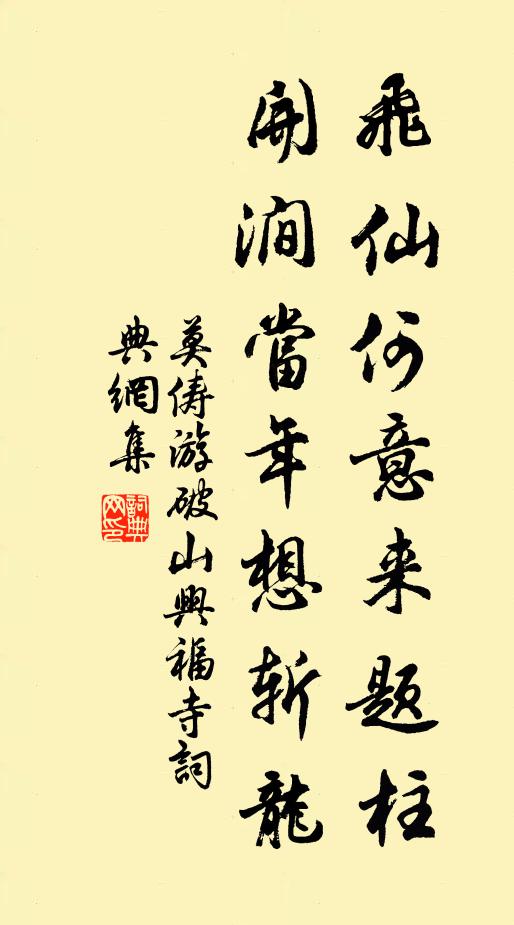 飛仙何意来題柱
開澗當年想斬龍
莫儔游破山興福寺詞
典網集
詞典网印